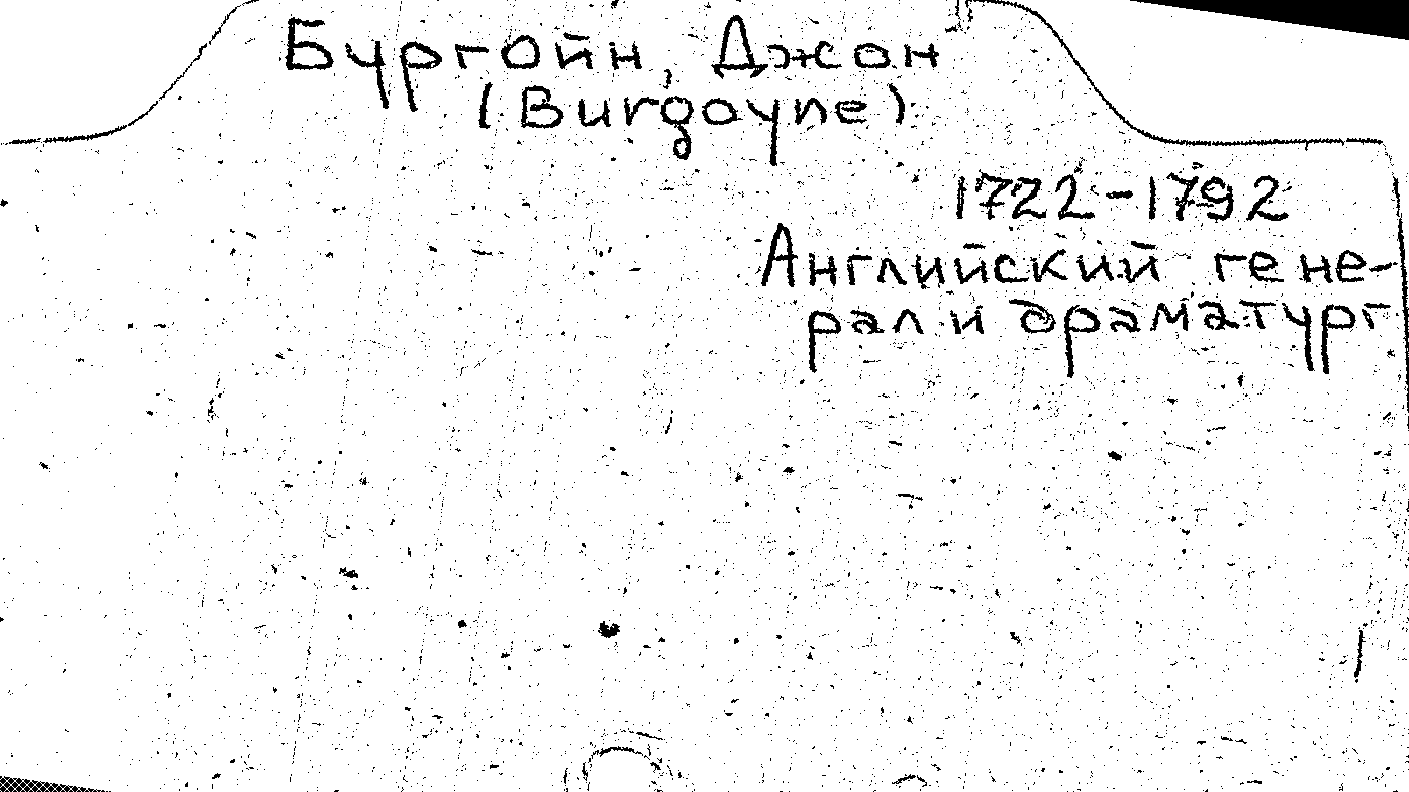 Бургойн, Джон
(Burgoyne)
1722-1792
Английский гене-
рал и драматург